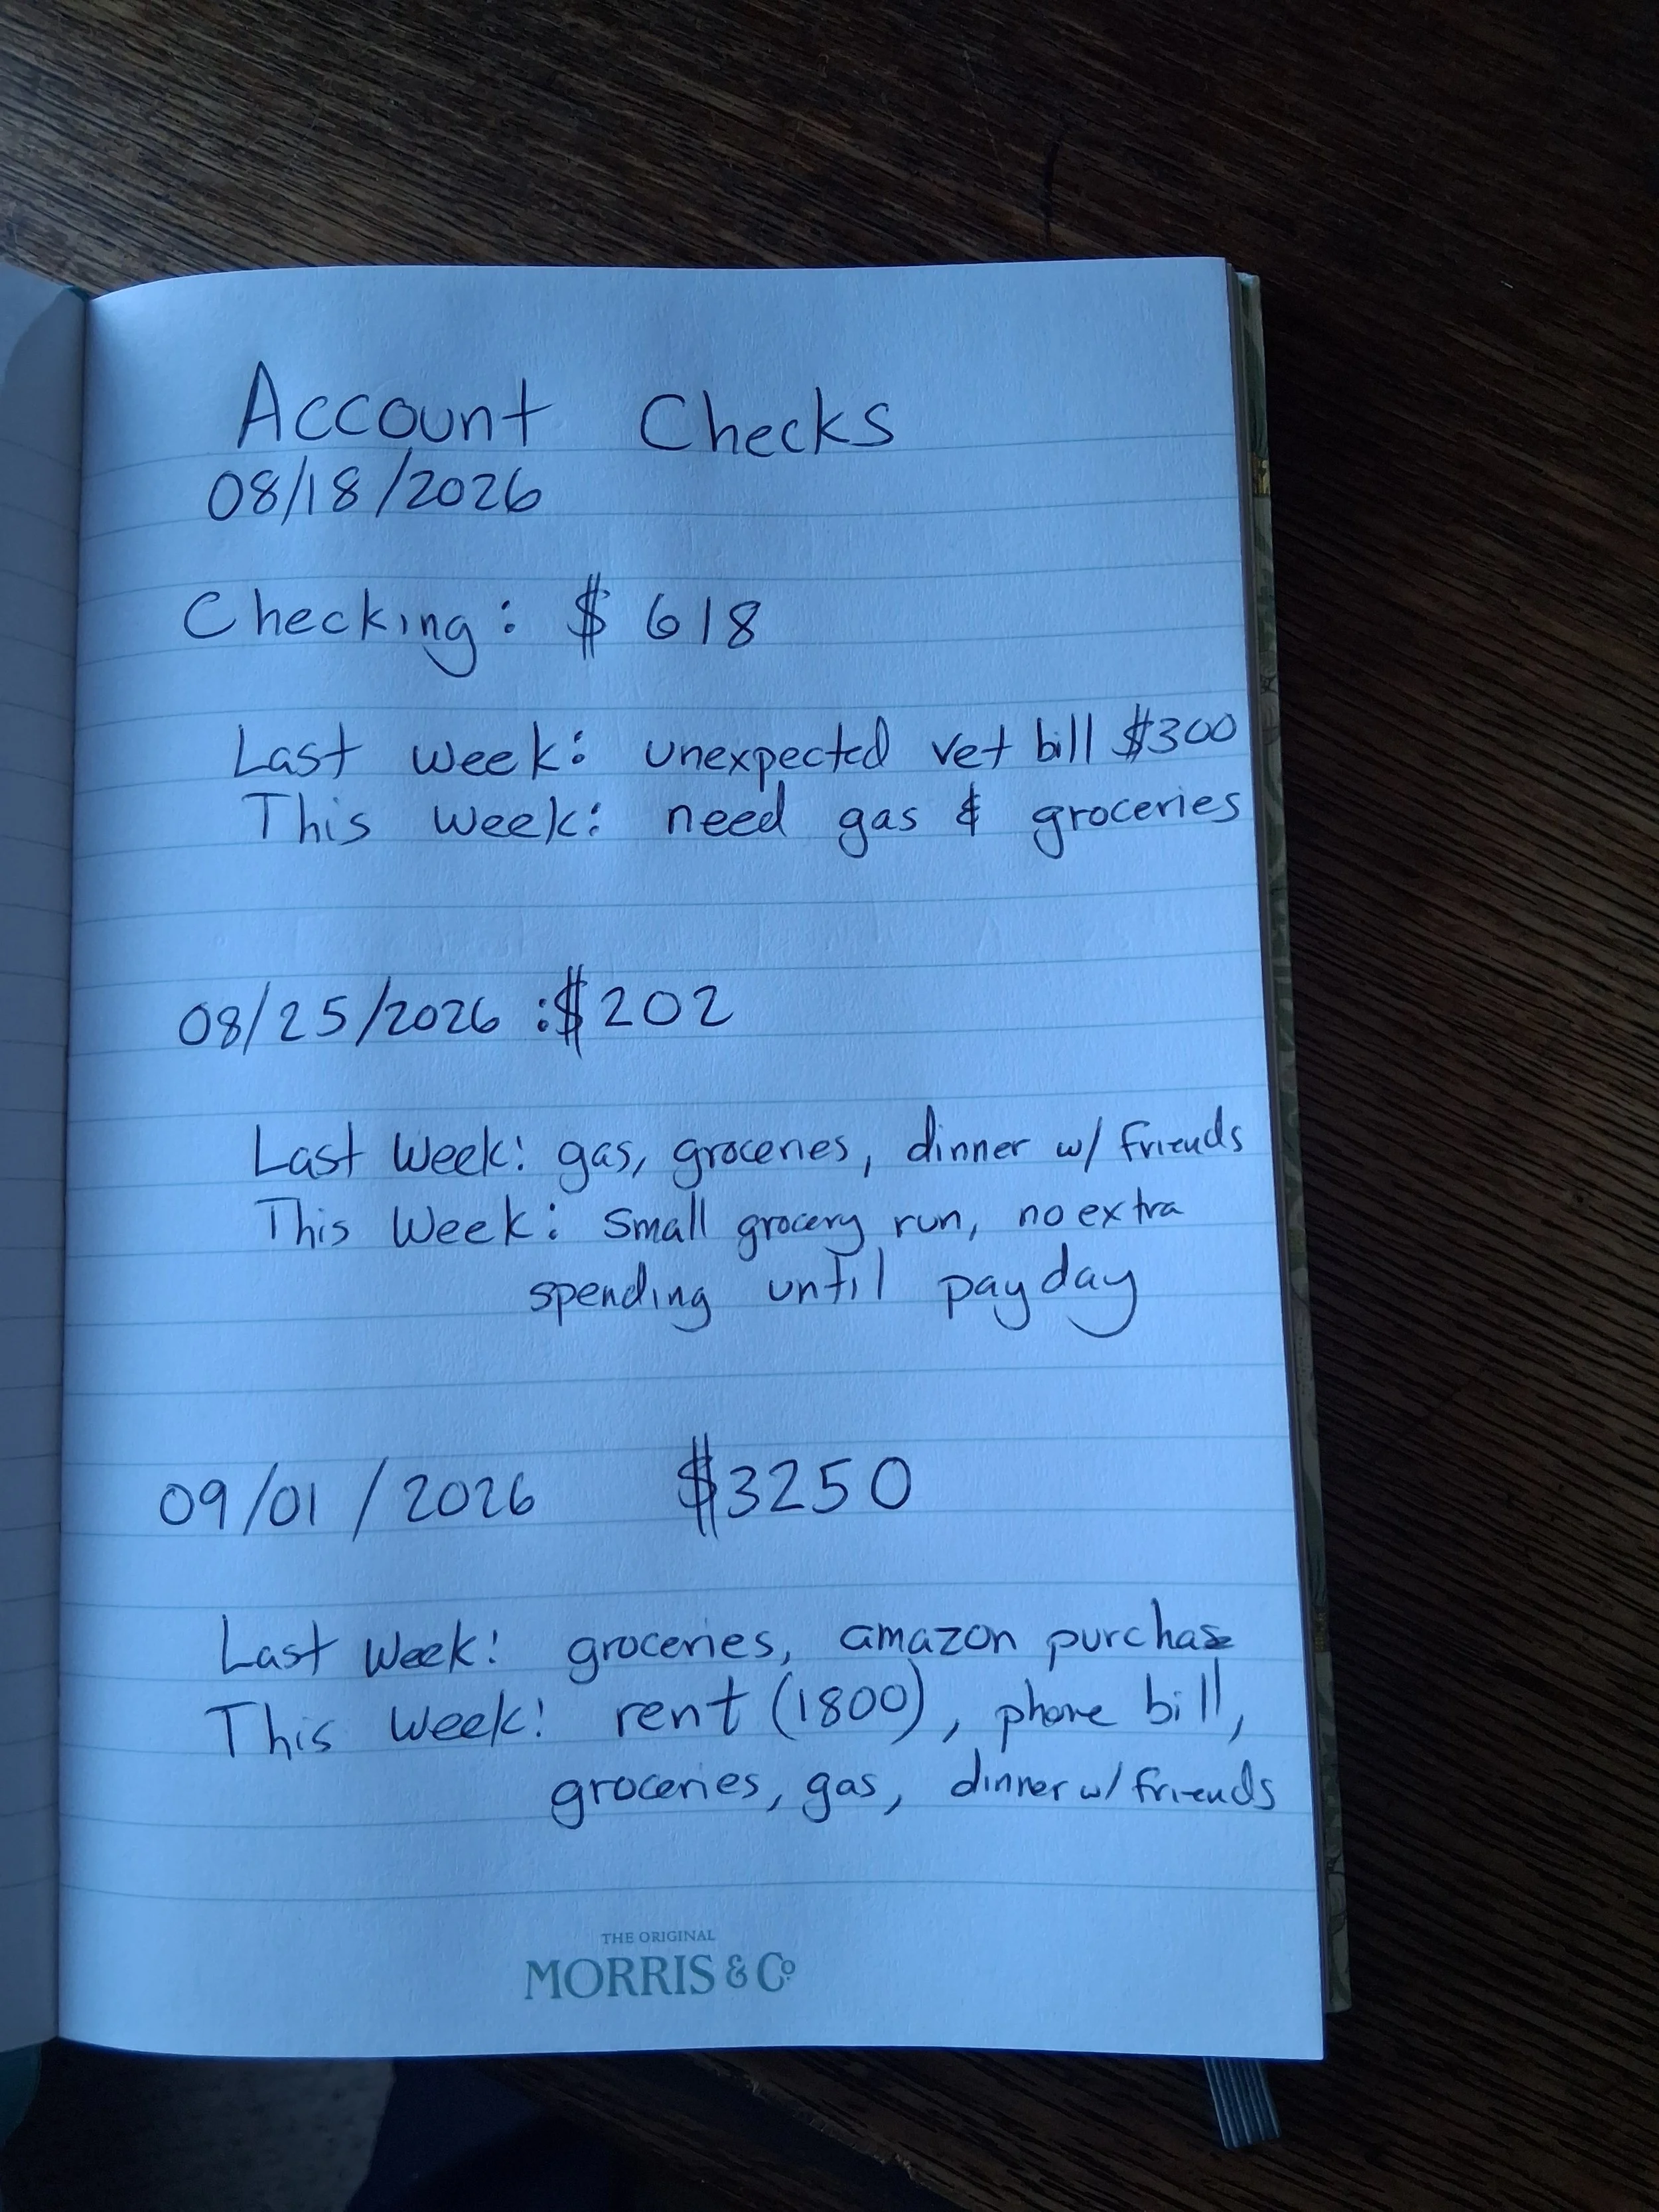 Account Checks
08/18/2026
Checking: $618
Last Week: unexpected vet bill $300
This Week: need gas & groceries
08/25/2026 :$202
Last Week: gas, groceries, dinner w/ friends
This Week: small grocery run, no extra
spending until payday
09/01/2026 $3250
Last Week: groceries, amazon purchase
This Week: rent (1800), phone bill,
groceries, gas, dinner w/ friends
THE ORIGINAL
MORRIS & Co